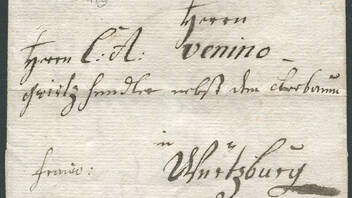 Herrn
Herrn C: A: Venino
gwirtz hendler nebst dem
in
Würtzburg
franco: